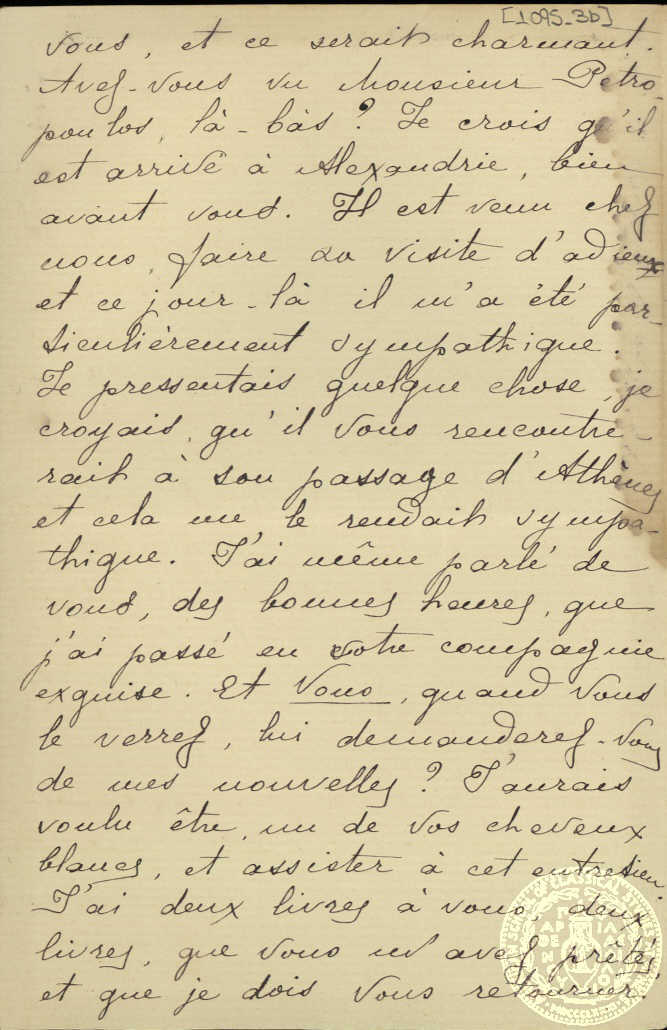 [1095-3b]
vous, et ce serait charmant.
Avez-vous vu Monsieur Petro-
poulos, là-bàs ? Je crois qu'il
est arrivé à Alexandrie, bien
avant vous. Il est venu chez
nous, faire sa visite d'adieux
et ce jour-là il m'a été par-
ticulièrement sympathique.
Je pressentais quelque chose, je
croyais, qu'il vous rencontre-
rait à son passage d'Athènes
et cela me le rendait sympa-
thique. J'ai même parlé de
vous, des bonnes heures, que
j'ai passé en votre compagnie
exquise. Et Vous, quand vous
le verrez, lui demanderez-vous
de mes nouvelles ? J'aurais
voulu être, un de vos cheveux
blancs, et assister à cet entretien.
J'ai deux livres à vous, deux
livres, que vous m'avez prêtés,
et que je dois vous retourner.